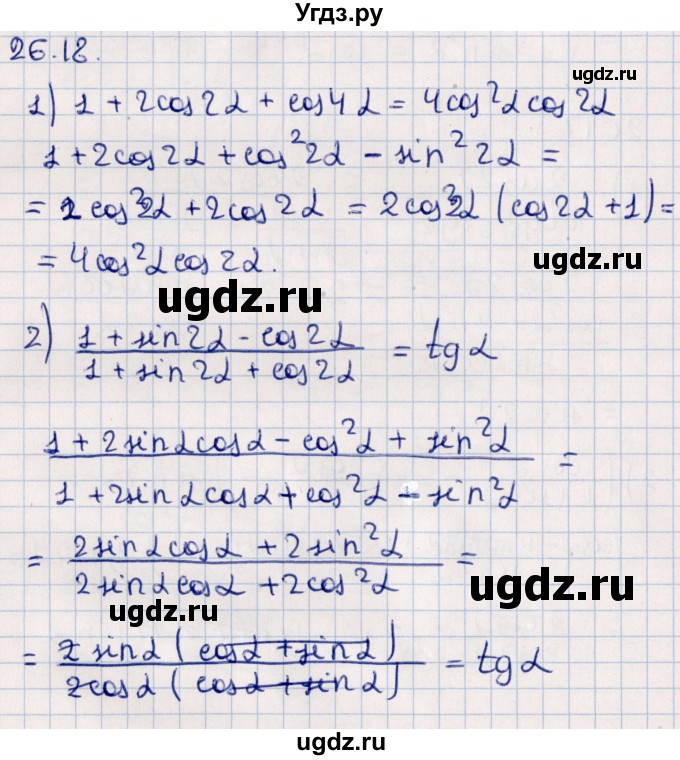 Угдз.ру
26.18.
ugdz.ru
1) 1 + 2cos2α + cos4α = 4cos²α cos2α
1 + 2cos2α + cos²2α − sin²2α =
= 2cos²2α + 2cos2α = 2cos2α (cos2α + 1) =
ugdz.ru
= 4cos²α cos2α.
ugdz.ru
2) (1 + sin2α − cos2α) / (1 + sin2α + cos2α) = tgα
(1 + 2sinα cosα − cos²α + sin²α) / (1 + 2sinα cosα + cos²α − sin²α) =
= (2sinα cosα + 2sin²α) / (2sinα cosα + 2cos²α) =
ugdz.ru
ugdz.ru
= 2sinα (cosα + sinα) / 2cosα (cosα + sinα) = tgα
ugdz.ru